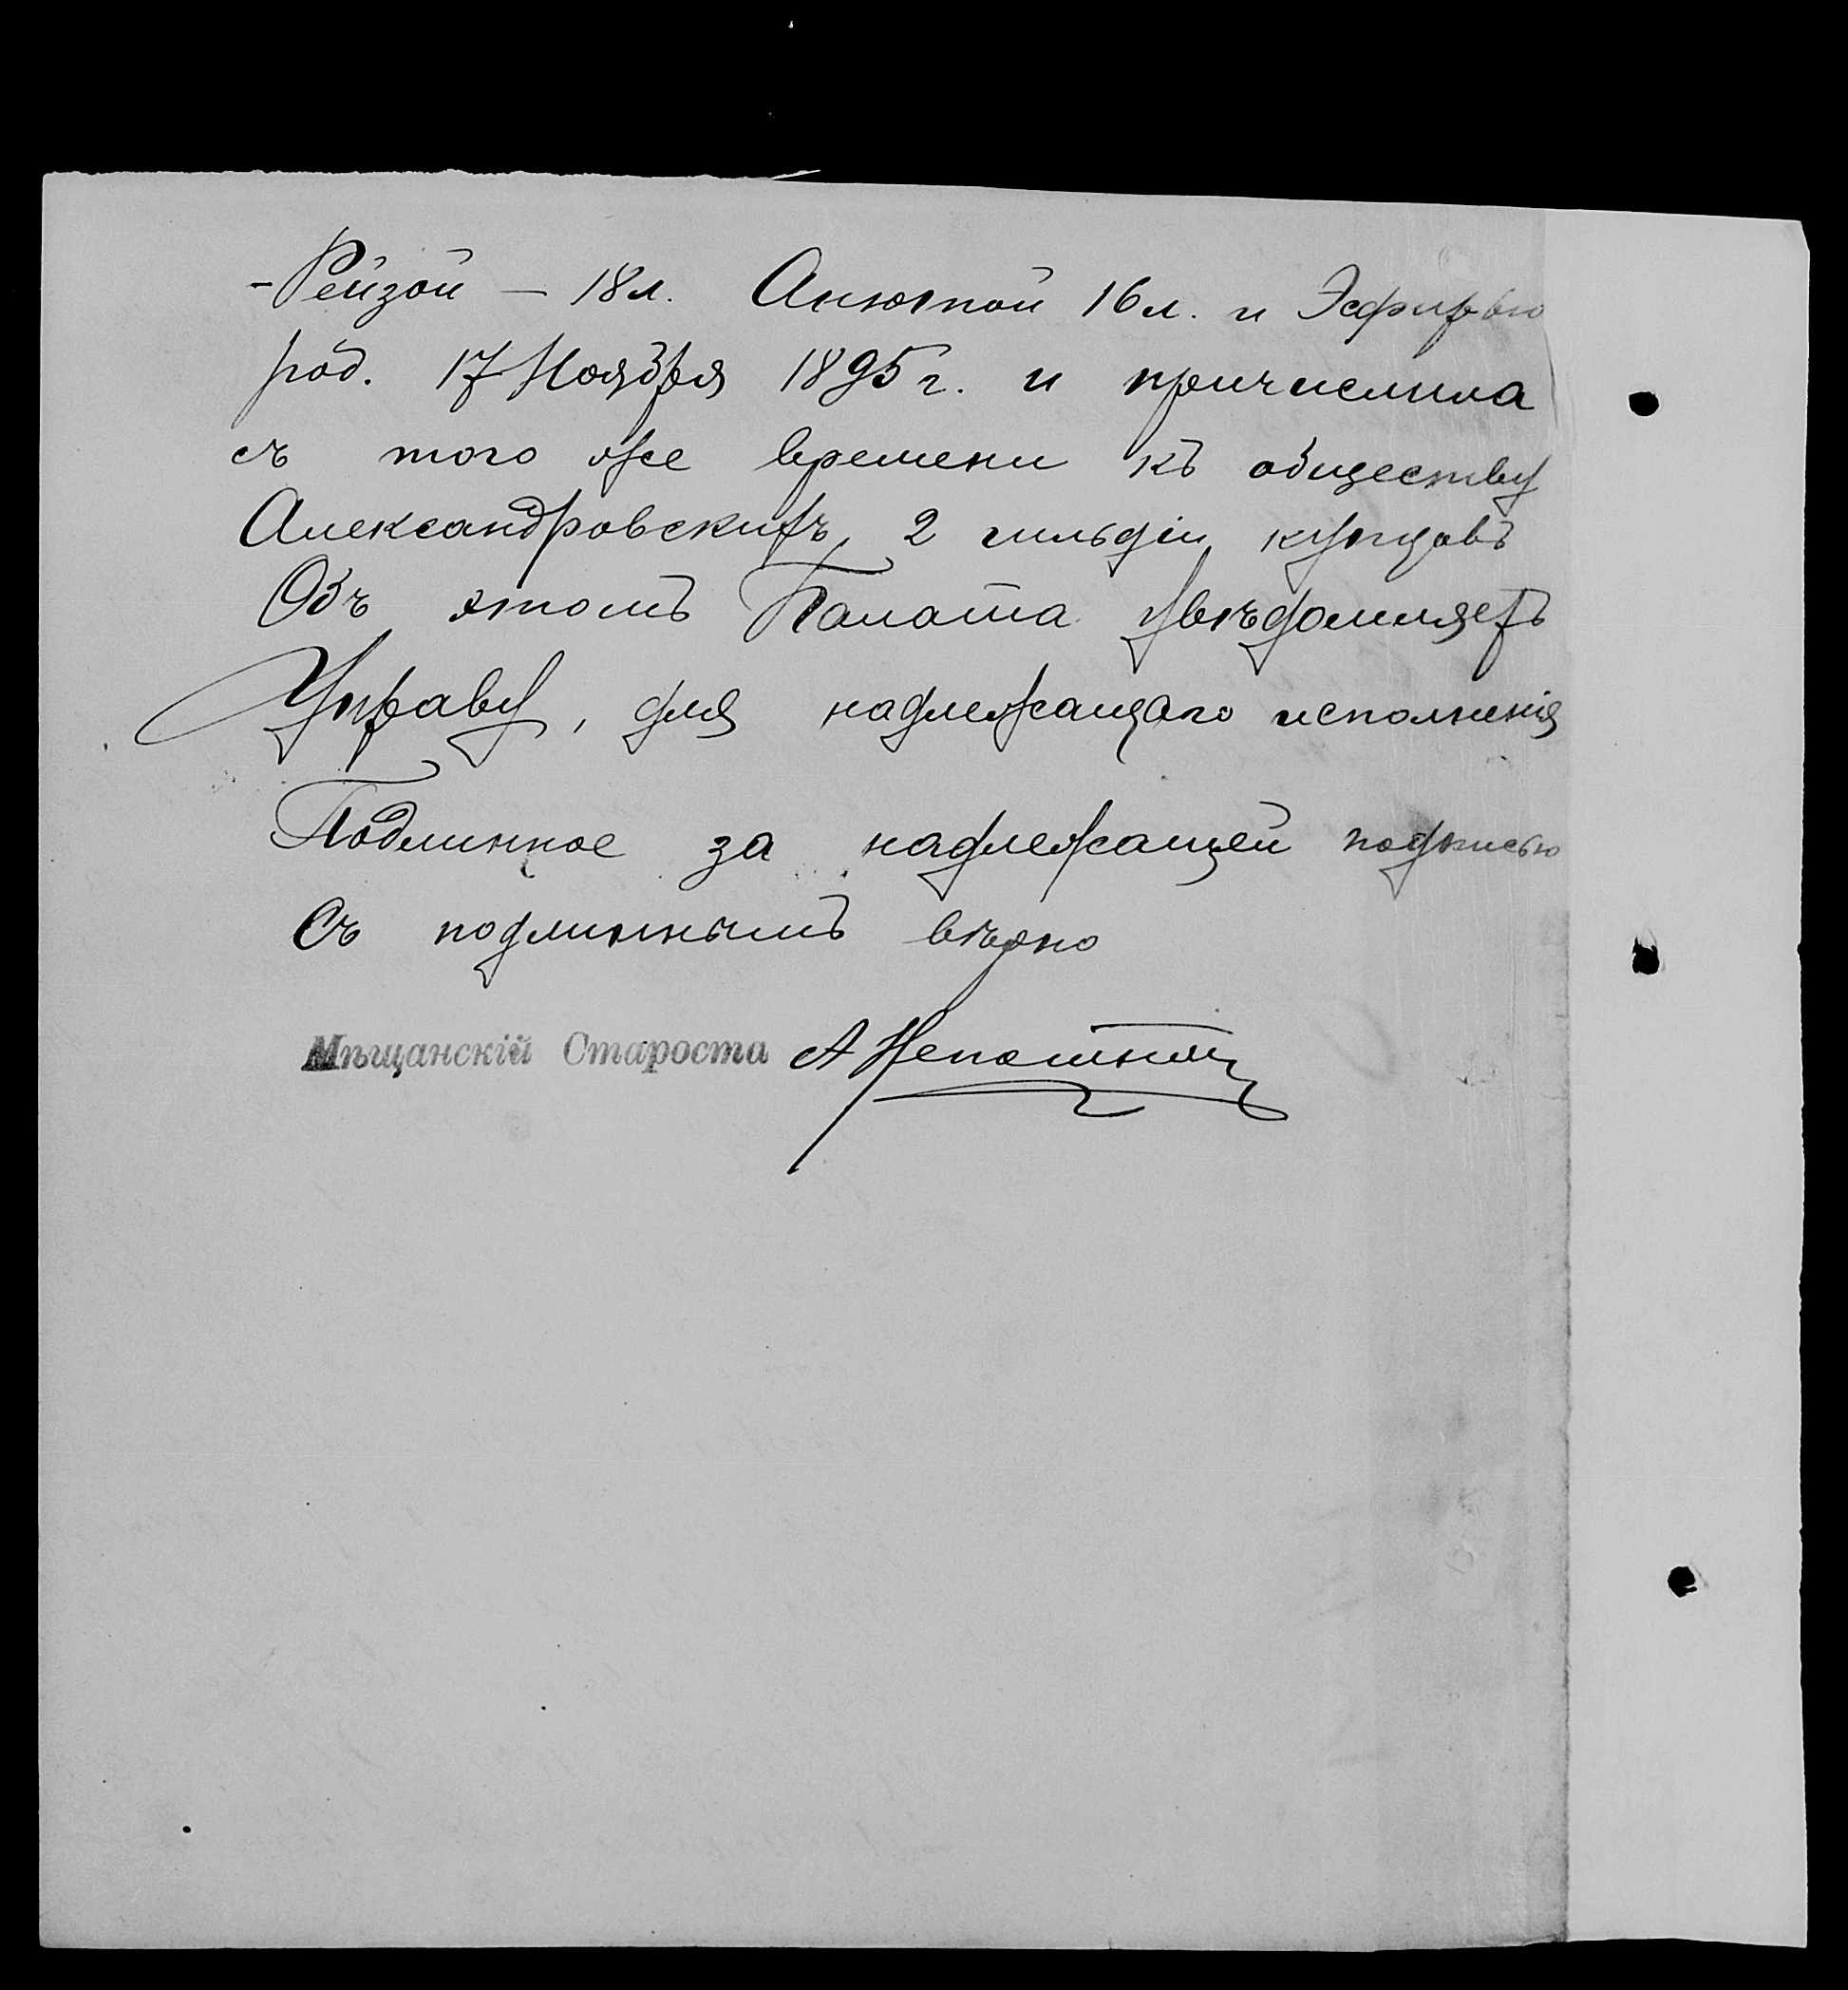 -Рейзой — 18 л. Анютой 16 л. и Эсфирью
род. 17 Ноября 1895 г. и причислила
съ того же времени къ обществу
Александровскихъ 2 гильдіи купцовъ
Объ этомъ Палата увѣдомляетъ
Управу, для надлежащаго исполненія
Подлинное за надлежащей подписью
Съ подлиннымъ вѣрно
Мѣщанскій Староста А